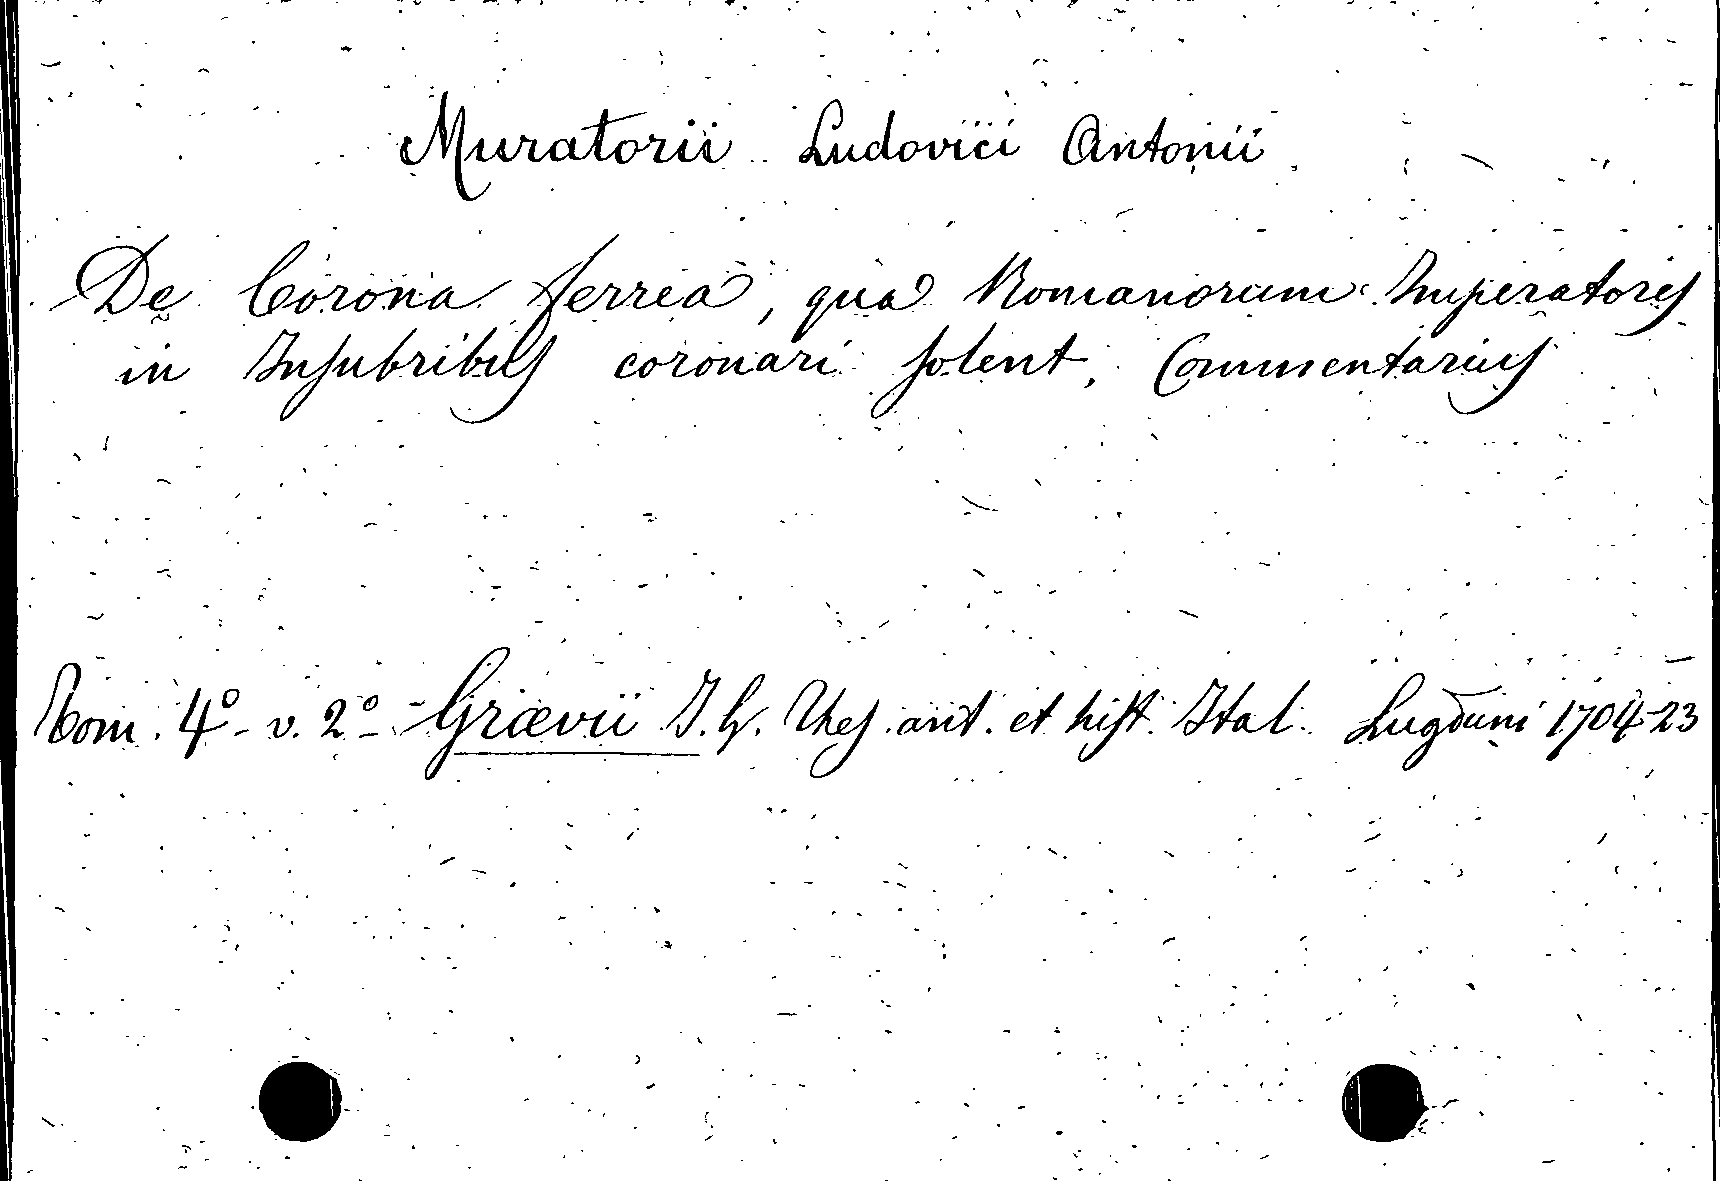 Muratorii Ludovici Antonii
De Corona ferrea, qua Romanorum Imperatores
in Insubribus coronari solent, Commentarius
Tom. 4º - v. 2º - Grævii J. G. Thes. ant. et hist. Ital. Lugduni 1704-23